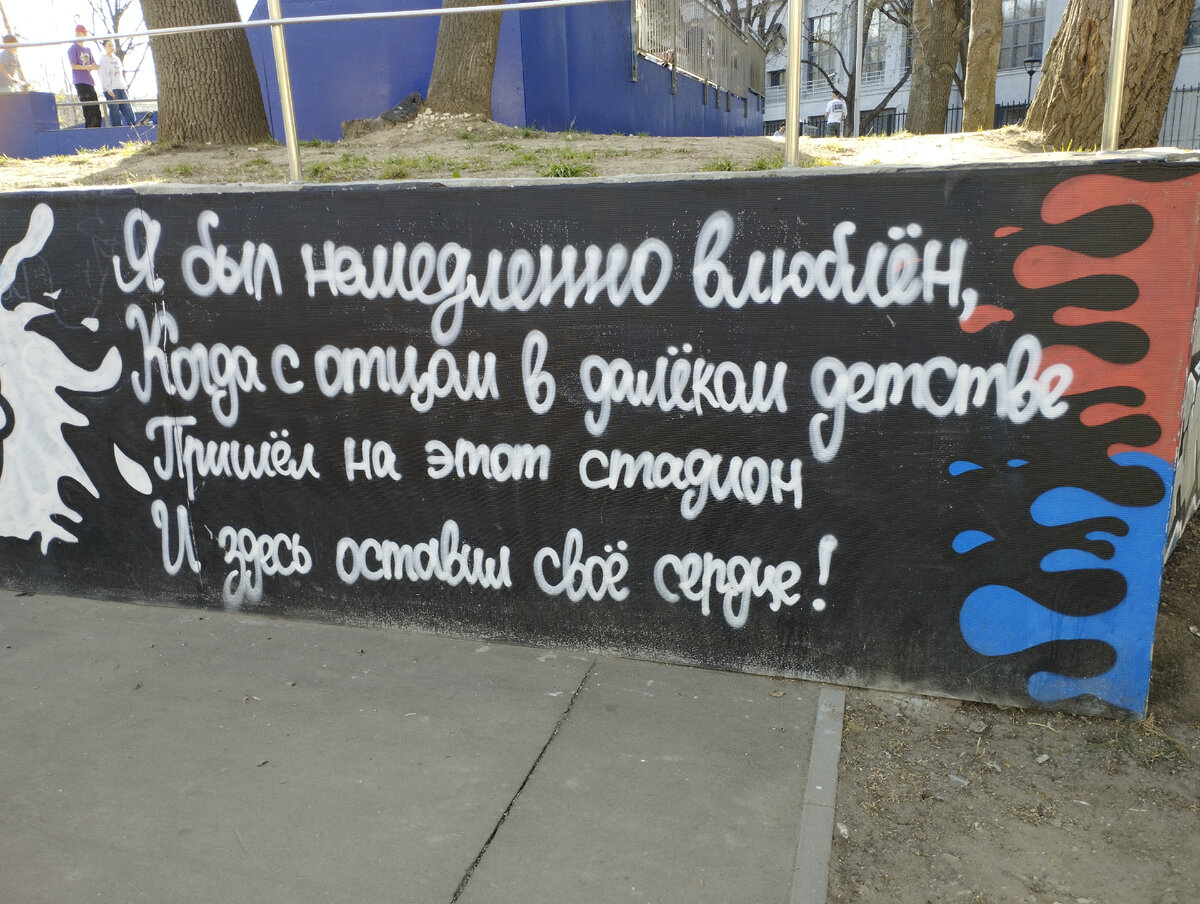 Я был немедленно влюблён,
Когда с отцом в далёком детстве
Пришёл на этот стадион
И здесь оставил своё сердце!